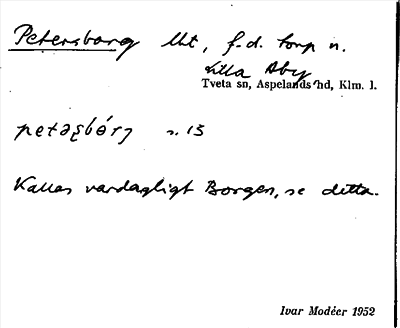 Petersborg lht, f.d. torp n.
Lilla Aby
Tveta sn, Aspelands hd, Klm. l.
petəʂbórj s. 13
Kallas vardagligt Borgen, se detta.
Ivar Modéer 1952